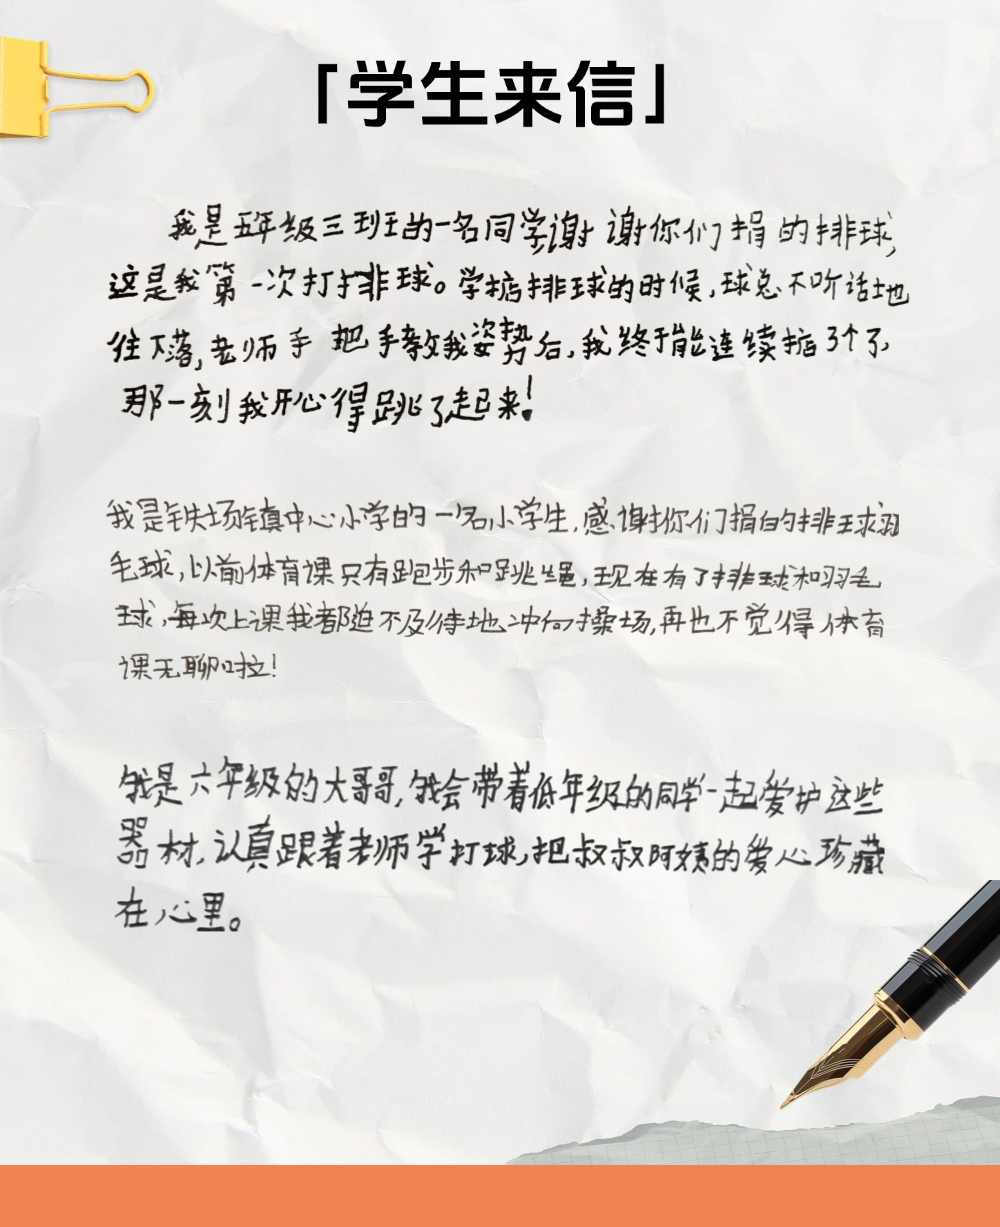 「学生来信」
我是五年级三班的一名同学谢谢你们捐的排球,
这是我第一次打排球。学掂排球的时候,球总不听话地
往下落,老师手把手教我姿势后,我终于能连续掂3个了,
那一刻我开心得跳了起来!
我是铁场镇中心小学的一名小学生,感谢你们捐的排球羽
毛球,以前体育课只有跑步和跳绳,现在有了排球和羽毛
球,每次上课我都迫不及待地冲向操场,再也不觉得体育
课无聊啦!
我是六年级的大哥哥,我会带着低年级的同学一起爱护这些
器材,认真跟着老师学打球,把叔叔阿姨的爱心珍藏
在心里。